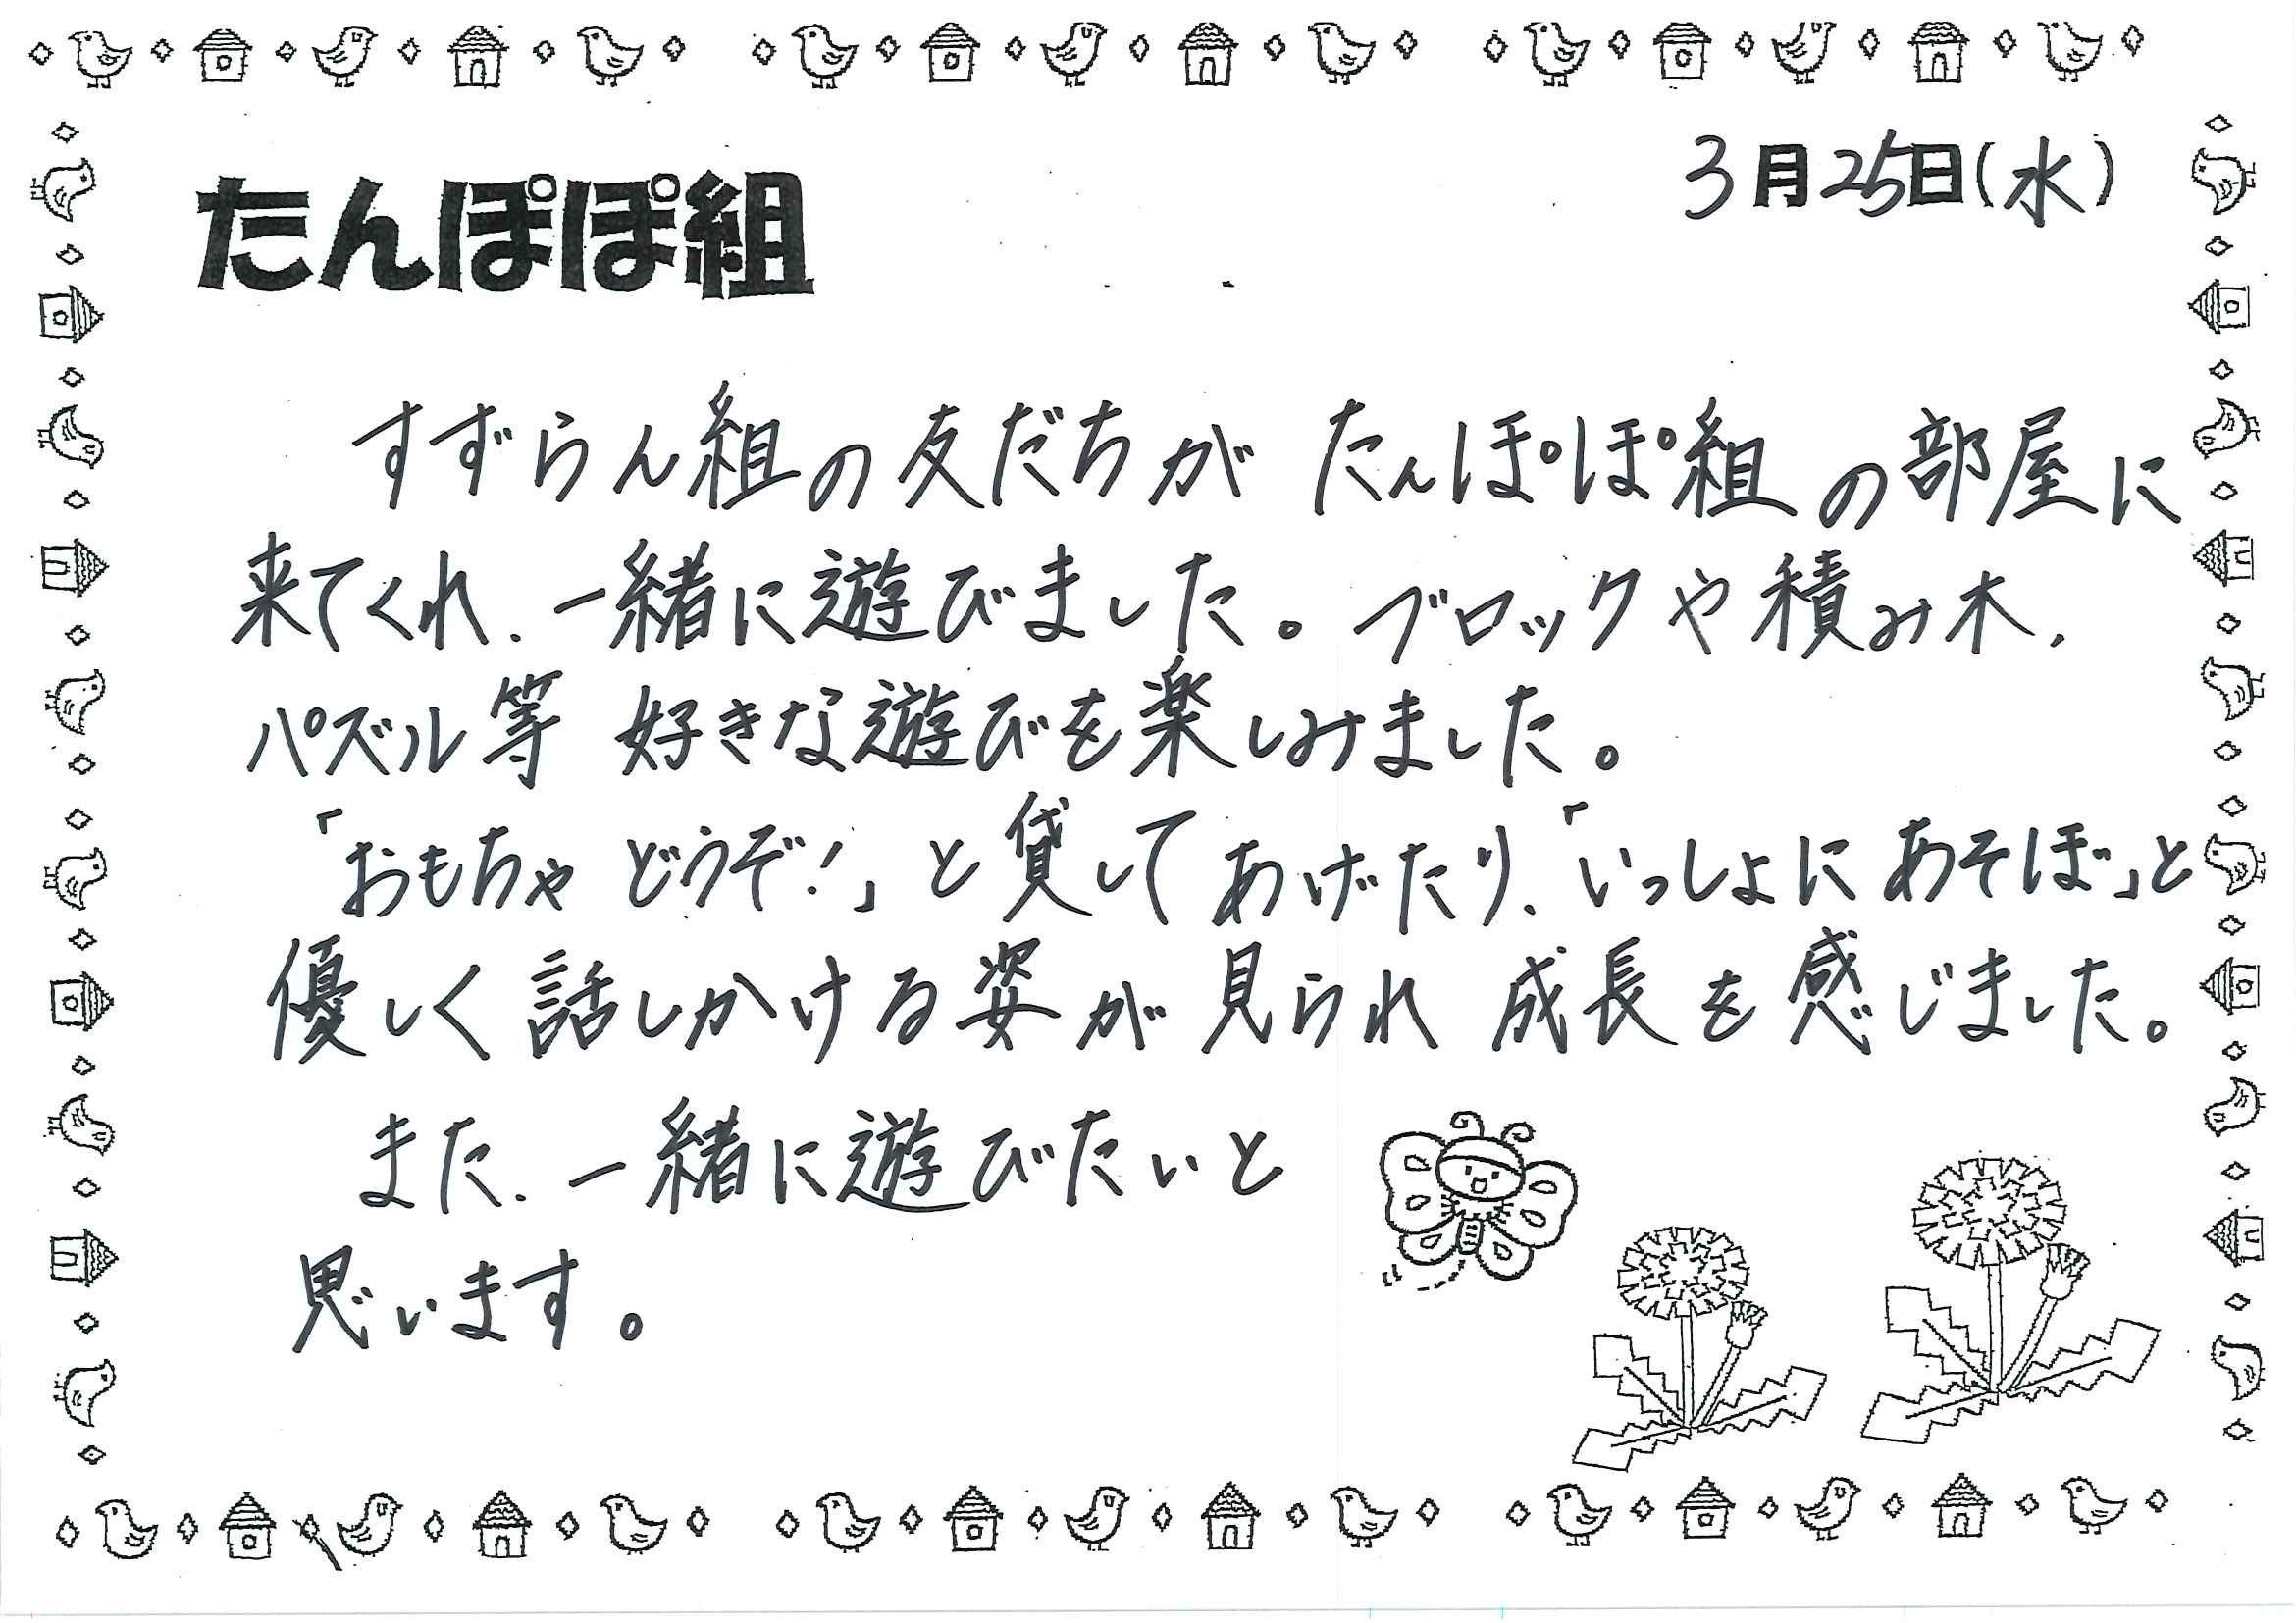 3月25日(水)
たんぽぽ組
すずらん組の友だちが たんぽぽ組の部屋に
来てくれ、一緒に遊びました。ブロックや積み木、
パズル等 好きな遊びを楽しみました。
「おもちゃ どうぞ!」と貸してあげたり、「いっしょに あそぼ」と
優しく話しかける姿が見られ 成長を感じました。
また、一緒に遊びたいと
思います。